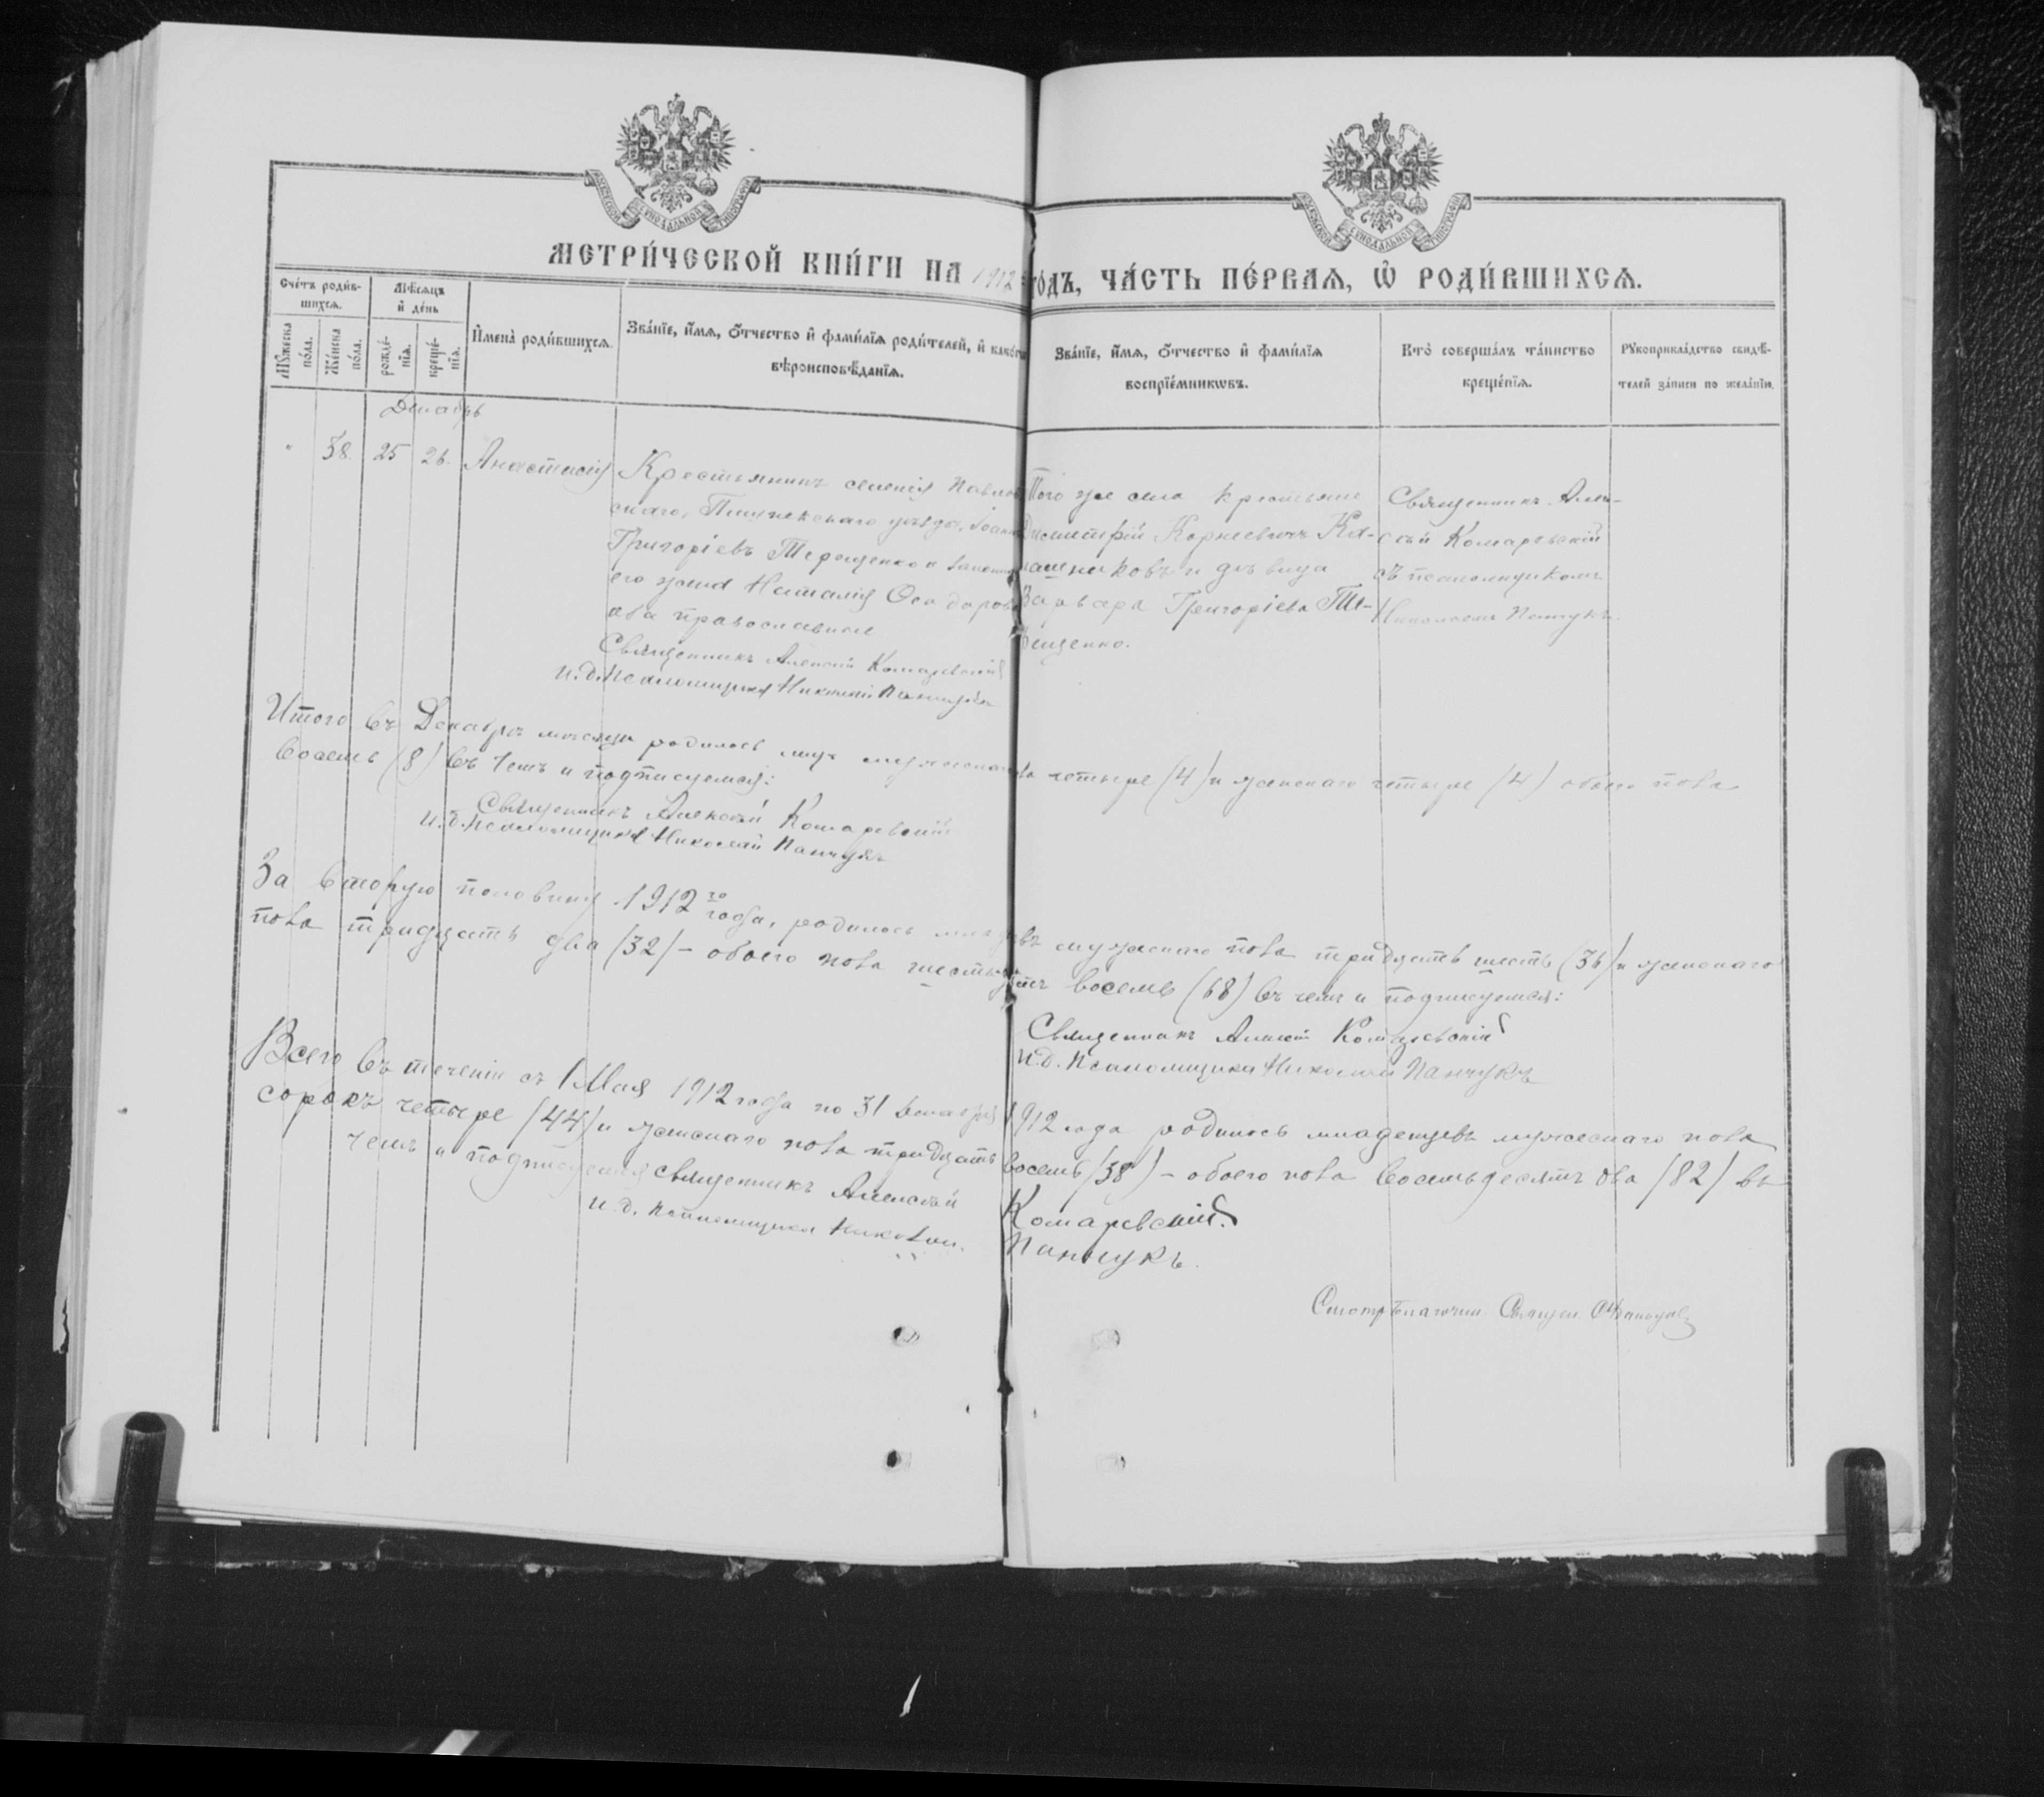 МОСКОВСКОЙ СѴНОДАЛЬНОЙ ТИПОГРАФІИ
МОСКОВСКОЙ СѴНОДАЛЬНОЙ ТИПОГРАФІИ
МЕТРИ́ЧЕСКОЙ КНИ́ГИ НА 1912 ГО́ДЪ, ЧА́СТЬ ПЕ́РВАЯ, Ѡ҆ РОДИ́ВШИХСЯ.
Сче́тъ роди́в-
шихся.
Мꙋ́жеска
по́ла.
Же́нска
по́ла.
Мѣ́сяцъ
и҆ де́нь
рожде́-
нїя.
креще́-
нїя.
И҆мена̀ роди́вшихся.
Зва́нїе, и҆́мя, ѻ҆́тчество и҆ фами́лїя роди́телей, и҆ како́гѡ
вѣроисповѣ́данїя.
Зва́нїе, и҆́мя, ѻ҆́тчество и҆ фами́лїя
воспрїе́мникѡвъ.
Кто̀ соверша́лъ та́инство
креще́нїя.
Рꙋкоприкла́дство свидѣ́-
телей за́писи по жела́нїю.
Декабрь
" 38. 25 26. Анастасія
Крестьянинъ селенія Павлов
скаго, Пишпекскаго уѣзда, Іоаннъ
Григоріевъ Терещенко и законная
его жена Наталія Ѳеодорова
оба православные
Священникъ Алексѣй Комаревскій
и.д. псаломщика Николай Панчукъ
Того же села крестьяне
Димитрій Корнеевичъ Ка-
лашниковъ и дѣвица
Варвара Григоріева Те-
рещенко.
Священникъ Але-
ксѣй Комаревскій
съ псаломщикомъ
Николаемъ Панчукъ.
Итого въ Декабрѣ мѣсяцѣ родилось мужескаго пола четыре (4) и женскаго четыре (4) обоего пола
восемь (8) въ чемъ и подписуемся:
Священникъ Алексѣй Комаревскій
и.д. псаломщика Николай Панчукъ
За вторую половину 1912 го года, родилось младенцевъ мужескаго пола тридцать шесть (36) и женскаго
пола тридцать два (32) - обоего пола шестьдесятъ восемь (68) въ чемъ и подписуемся:
Священникъ Алексѣй Комаревскій
и.д. псаломщика Николай Панчукъ
Всего въ теченіи съ 1 Мая 1912 года по 31 Декабря 1912 года родилось младенцевъ мужескаго пола
сорокъ четыре (44) и женскаго пола тридцать восемь (38) - обоего пола восемьдесятъ два (82) въ
чемъ и подписуемся Священникъ Алексѣй Комаревскій.
и.д. псаломщика Николай Панчукъ.